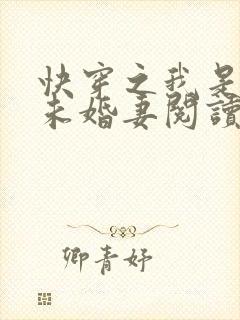 快穿之我是
未婚妻閱讀
卿青妤